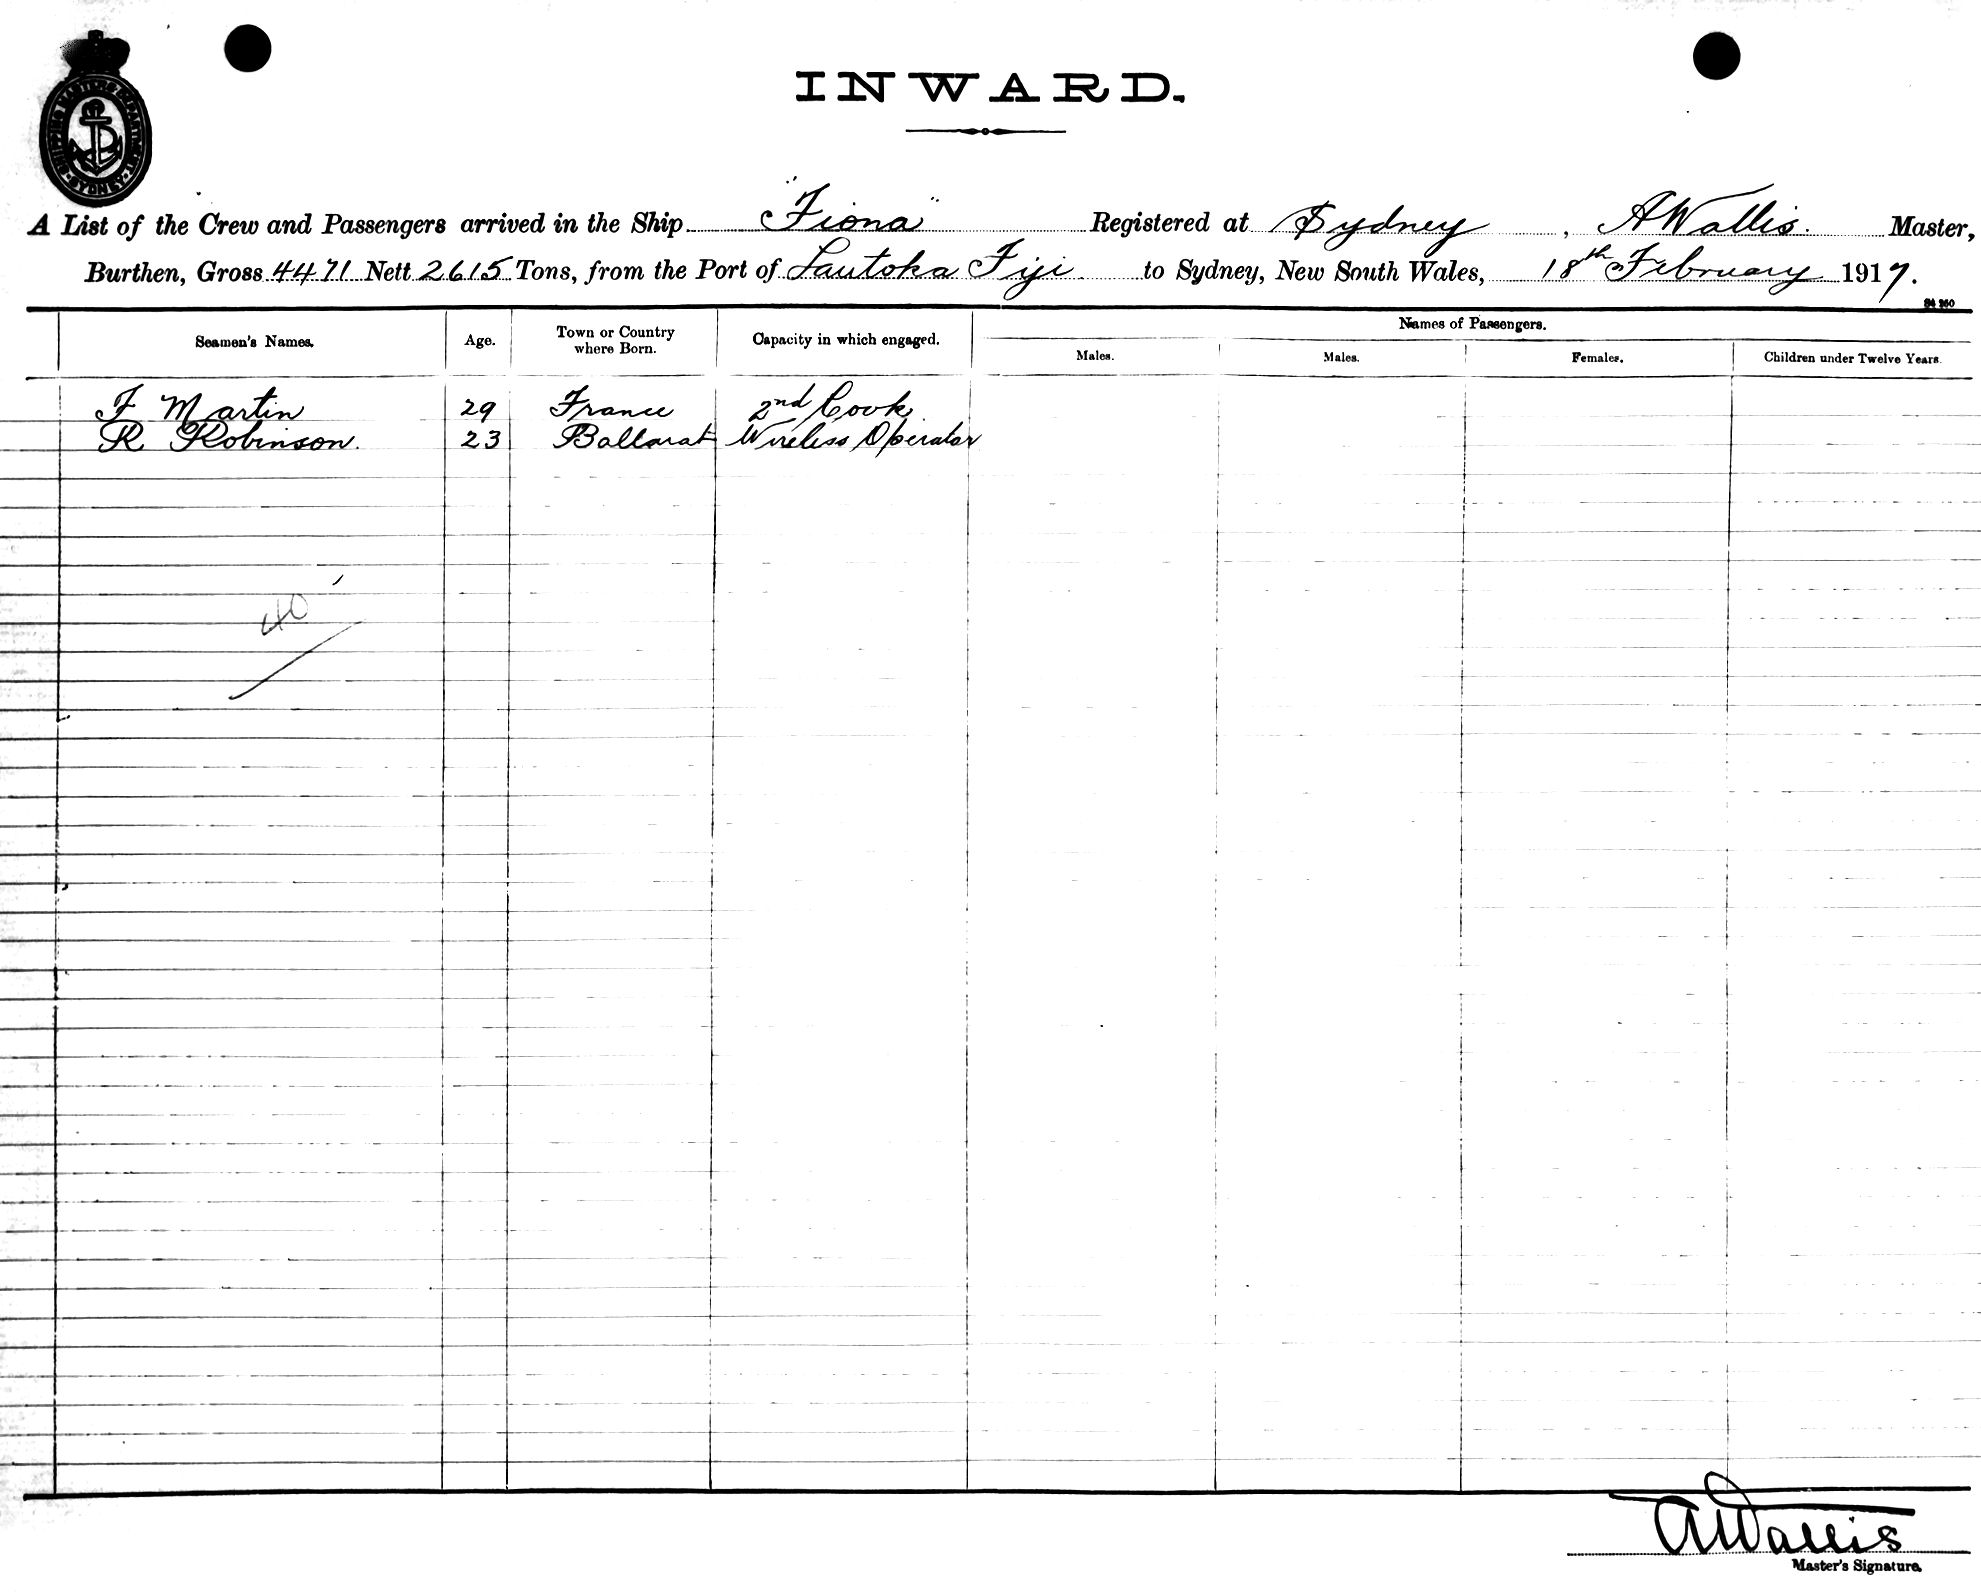 SHIPPING MASTERS DEPARTMENT SYDNEY
INWARD.
A List of the Crew and Passengers arrived in the Ship "Fiona" Registered at Sydney, A Wallis. Master,
Burthen, Gross 4471 Nett 2615 Tons, from the Port of Lautoka Fiji to Sydney, New South Wales, 18th February 1917.
Names of Passengers.
Seamen's Names. Age. Town or Country where Born. Capacity in which engaged. Males. Males. Females. Children under Twelve Years.
F Martin 29 France 2nd Cook
R Robinson. 23 Ballarat Wireless Operator
40
AWallis
Master's Signature.